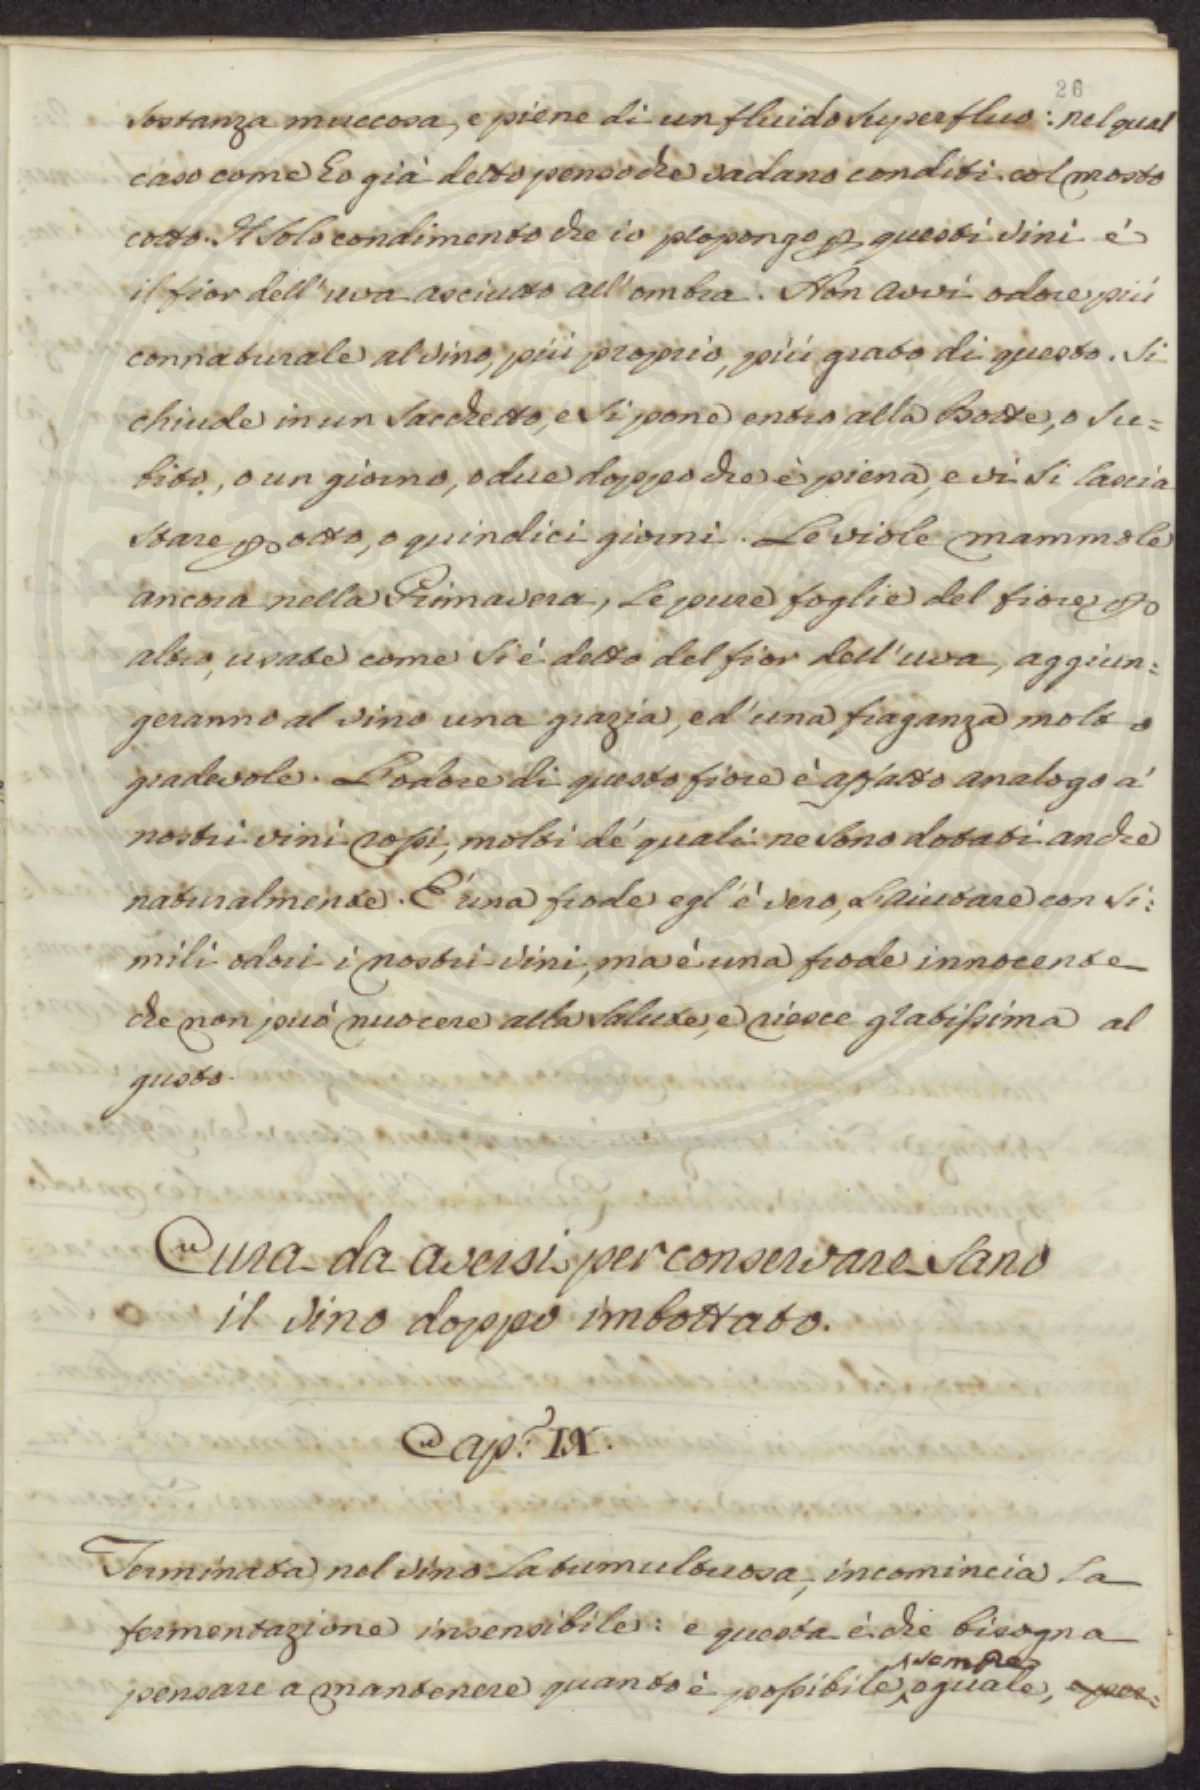 26
sostanza muccosa, e piene di un fluido superfluo: nel qual
caso come ho già detto penso che vadano conditi col mosto
cotto. Il solo condimento che io propongo p questi vini é
il fior dell'uva asciutto all'ombra. Non avvi odore più
connaturale al vino, più proprio, più grato di questo. Si
chiude in un sacchetto, e si pone entro alla Botte, o su=
bito, o un giorno, o due doppo che è piena, e vi si lascia
stare p otto, o quindici giorni. Le viole mammole
ancora nella Primavera, le pure foglie del fiore p
altro, usate come si é detto del fior dell'uva, aggiun=
geranno al vino una grazia, ed'una fraganza molto
gradevole. L'odore di questo fiore è affatto analogo a'
nostri vini rossi, molti de' quali ne sono dotati anche
naturalmente. E' una frode egl'è vero, l'aiutare con si=
mili odori i nostri vini, ma é una frode innocente
che non può nuocere alla salute, e riesce gratissima al
gusto.
Cura da aversi per conservare sano
il vino doppo imbottato.
Cap.° IX.
Terminata nel vino la tumultuosa, incomincia la
fermentazione insensibile: e questa é che bisogna
sempre
pensare a mantenere quanto è possibile, eguale, e per=